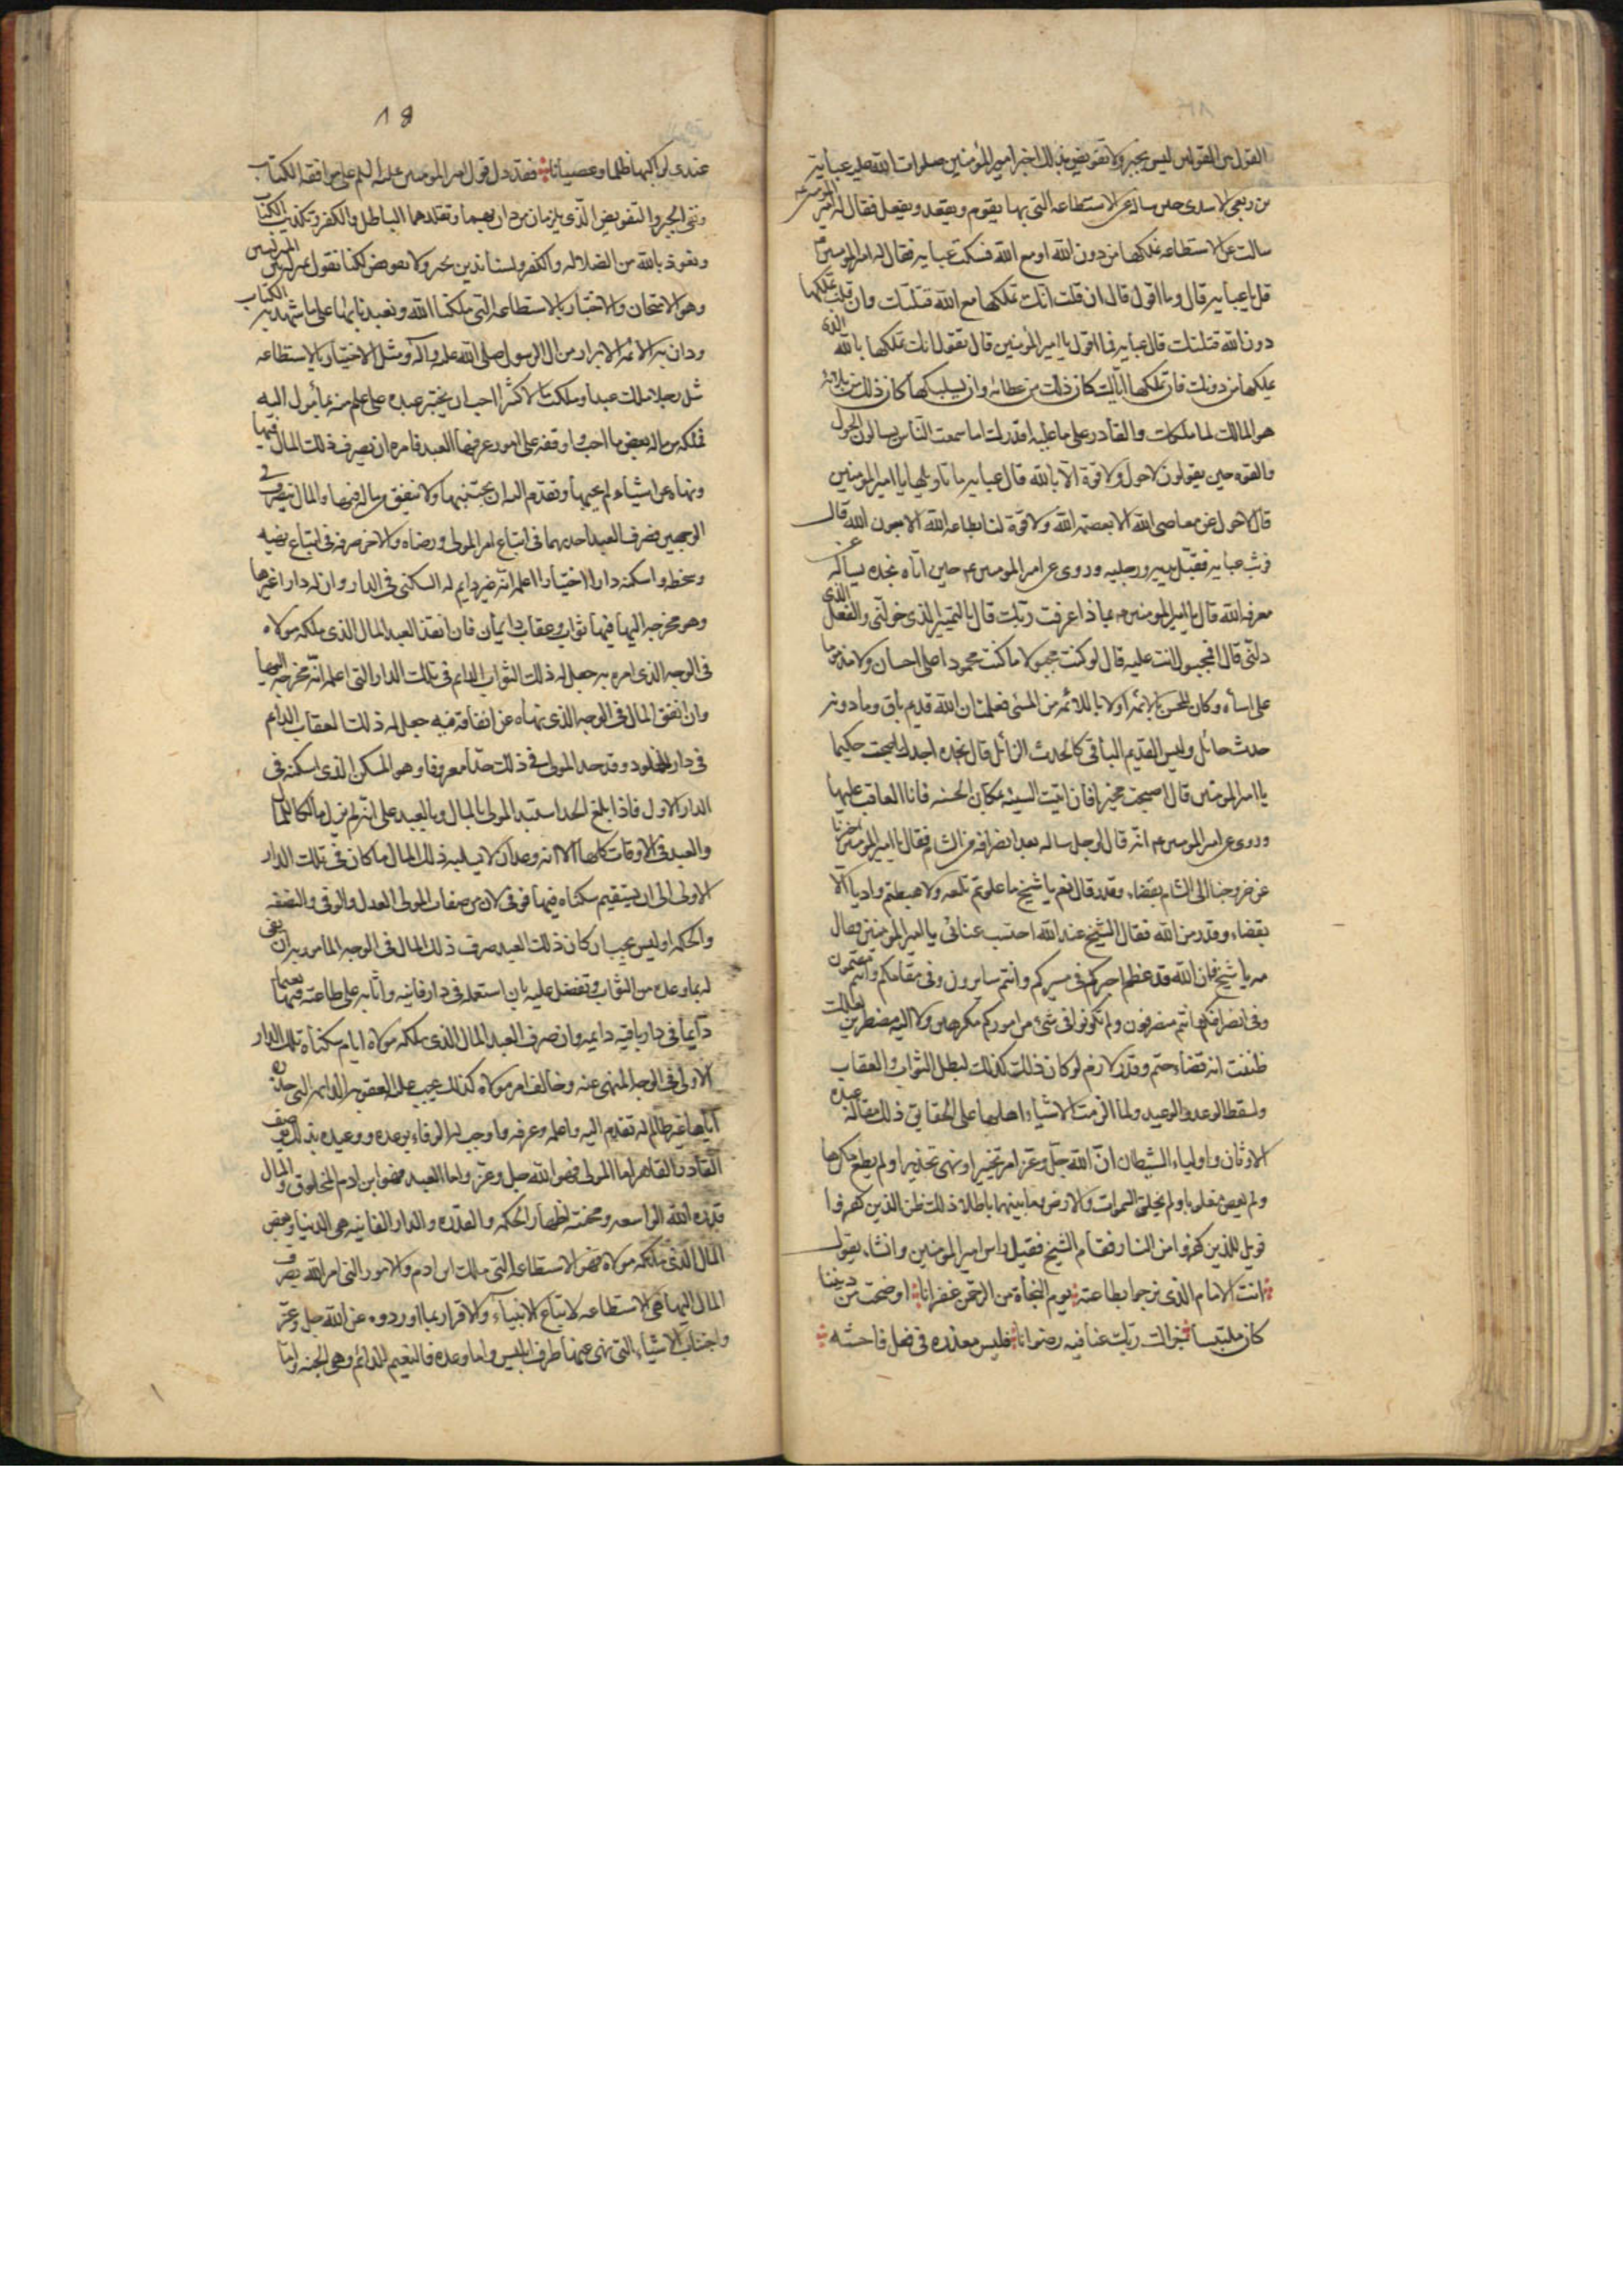 القول بين القولين ليس بجبر ولا تفويض بذلك اخبر امير المؤمنين صلوات الله عليه عباية
بن ربعى الاسدى حين ساله عن الاستطاعه التى بها يقوم ويقعد ويفعل فقال له امير المؤمنين
سالت عن الاستطاعه تملكها من دون الله او مع الله فسكت عبايه فقال له امير المومنين
قل يا عبايه قال وما اقول قال ان قلت انك تملكها مع الله قتلتك وان قلت تملكها
دون الله قتلتك قال عبايه فما اقول يا امير المؤمنين قال تقول انك تملكها بالله الذى
يملكها من دونك فان تملكها اياك كان ذلك من عطائه وان يسلبكها كان ذلك من بلائه
هو المالك لما ملكك والقادر على ما عليه اقدرك اما سمعت الناس يسالون الحول
والقوه حين يقولون لا حول ولا قوة الا بالله قال عبايه ما تاويلها يا امير المؤمنين
قال لا حول عن معاصى الله الا بعصمة الله ولا قوة لنا بطاعه الله الا بعون الله قال
فوثب عبايه فقبل يديه ورجليه وروى عن امير المومنين حين اتاه نجده يساله عن
معرفه الله قال يا امير المومنين بما ذا عرفت ربك قال بالتمييز الذى خولنى والعقل الذى
دلنى قال افمجبول انت عليه قال لو كنت مجبولا ما كنت محمودا على احسان ولا مذموما
على اساه وكان المحسن اولى باللائمه من المسئ فعلمت ان الله قديم باق وما دونه
حدث حائل وليس القديم الباقى كالحدث الزائل قال نجده اجدك اصبحت حكيما
يا امير المومنين قال اصبحت مخيرا فان اتيت السيئه بمكان الحسنه فانا العاقب عليها
وروى عن امير المومنين انه قال لرجل ساله بعد انصرافه من الشام فقال يا امير المومنين اخبرنا
عن خروجنا الى الشام بقضاء وقدر قال نعم يا شيخ ما علوتم تلعه ولا هبطتم واديا الا
بقضاء وقدر من الله فقال الشيخ عند الله احتسب عنائى يا امير المومنين فقال
مه يا شيخ فان الله قد عظم اجركم فى مسيركم وانتم سايرون وفى مقامكم وانتم مقيمون
وفى انصرافكم وانتم منصرفون ولم تكونوا فى شئ من اموركم مكرهين ولا اليه مضطرين لعلك
ظننت انه قضاء حتم وقدر لازم لو كان ذلك كذلك لبطل الثواب والعقاب
ولسقط الوعد والوعيد ولما الزمت الاشياء اهلها على الحقايق ذلك مقالة عبدة
الاوثان واولياء الشيطان ان الله جل وعز امر تخييرا ونهى تحذيرا ولم يطع مكرها
ولم يعص مغلوبا ولم يخلق السموات والارض وما بينهما باطلا ذلك ظن الذين كفروا
فويل للذين كفروا من النار فقام الشيخ فقبل راس امير المومنين وانشاء يقول
انت الامام الذى نرجو بطاعته يوم النجاة من الرحمن غفرانا اوضحت من ديننا
كان ملتبسا جزاك ربك عنا فيه رضوانا فليس معذرة فى فعل فاحشه
عندى لراكبها ظلما وعصيانا فقد دل قول امير المومنين عليه السلم على موافقه الكتاب
ونفى الجبر والتفويض الذى يلزمان من دان بهما وتقلدهما الباطل والكفر وتكذيب الكتاب
ونعوذ بالله من الضلاله والكفر ولسنا ندين بجبر ولا تفويض لكنا نقول بمنزله بين المنزلتين
وهو الامتحان والاختبار بالاستطاعه التى ملكنا الله وتعبدنا بها على ما شهد به الكتاب
ودان به الائمه الابرار من ال الرسول صلى الله عليه واله ومثل الاختبار بالاستطاعه
مثل رجل ملك عبدا وملك مالا كثيرا احب ان يختبر عبده على علم منه بما يئول اليه
فملكه من ماله بعض ما احب ووقفه على امور عرفها العبد فامره ان يصرف ذلك المال فيها
ونهاه عن اشياء لم يحبها وتقدم اليه ان يجتنبها ولا ينفق من ماله فيها والمال يتصرف فى
الوجهين فصرف العبد احدهما فى اتباع امر المولى ورضاه والاخر صرفه فى اتباع نهيه
وسخطه واسكنه دار اختبار اعلمه انه غير دايم له السكنى فى الدار وان له دارا غيرها
وهو مخرجه اليها فيها ثواب وعقاب دايمان فان انفذ العبد المال الذى ملكه مولاه
فى الوجه الذى امره به جعل له ذلك الثواب الدايم فى تلك الدار التى اعلمه انه مخرجه اليها
وان انفق المال فى الوجه الذى نهاه عن انفاقه فيه جعل له ذلك العقاب الدايم
فى دار الخلود وقد حد المولى فى ذلك حدا معروفا وهو المسكن الذى اسكنه فى
الدار الاول فاذا بلغ الحد استبدل المولى بالمال وبالعبد على انه لم يزل مالكا للمال
والعبد فى الاوقات كلها الا انه وعد ان لا يسلبه ذلك المال ما كان فى تلك الدار
الاولى الى ان يستقيم سكناه فيها فوفى لان من صفات المولى العدل والوفى والنصفه
والحكمه اوليس يجب ان كان ذلك العبد صرف ذلك المال فى الوجه المامور به ان يفى
له بما وعده من الثواب وتفضل عليه بان استعمله فى دار فانيه واثابه على طاعته فيها نعيما
دايما فى دار باقيه دايمه وان صرف العبد المال الذى ملكه مولاه ايام سكناه تلك الدار
الاولى فى الوجه المنهى عنه وخالف امر مولاه كذلك يجب عليه العقوبه الدايمه التى حذره
اياها غير ظالم له تقدم اليه واعلمه وعرفه واوجب له الوفاء بوعده ووعيده بذلك يوصف
القادر القاهر اما المولى فهو الله جل وعز واما العبد فهو ابن ادم المخلوق والمال
قدره الله الواسعه ومحنته اظهار الحكمه والقدره والدار الفانيه هى الدنيا وبعض
المال الذى ملكه مولاه فهو الاستطاعه التى ملك ابن ادم والامور التى امر الله بصرف
المال اليها هى الاستطاعه لاتباع الانبياء والاقرار بما اوردوه عن الله جل وعز
واجتناب الاشياء التى نهى عنها طرق ابليس واما وعده فالنعيم الدائم وهى الجنه واما